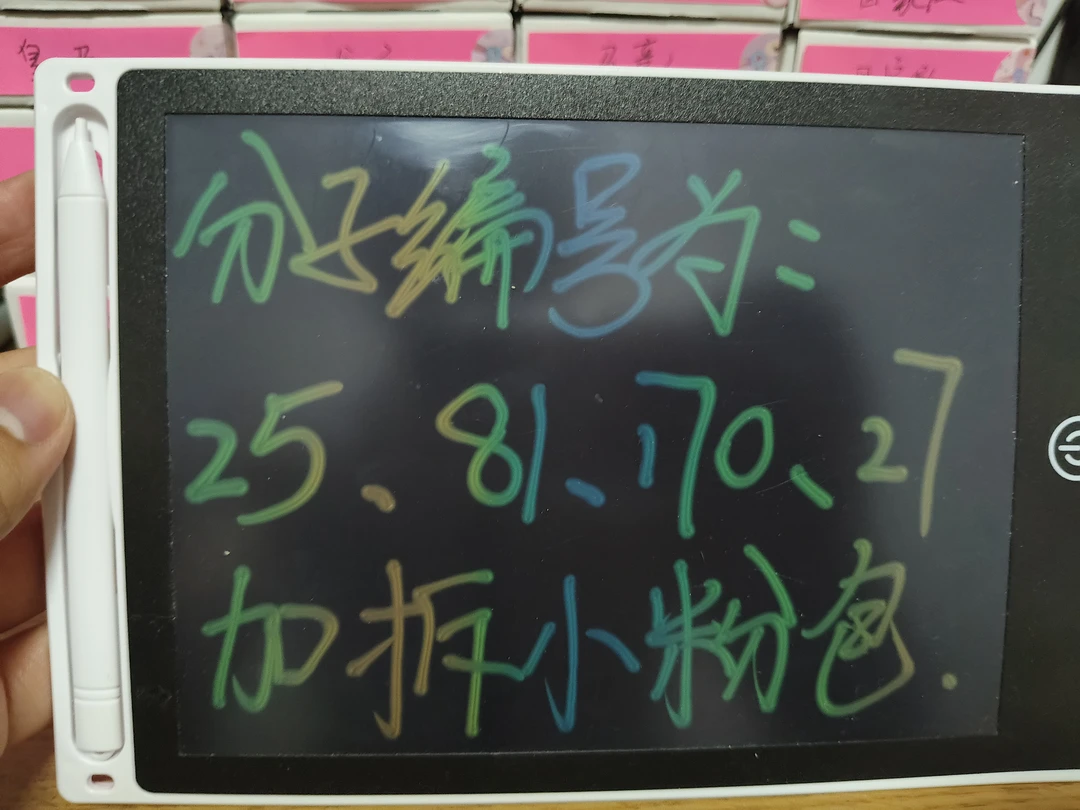 分子编号为:
25、81、170、27
加拆小粉包.